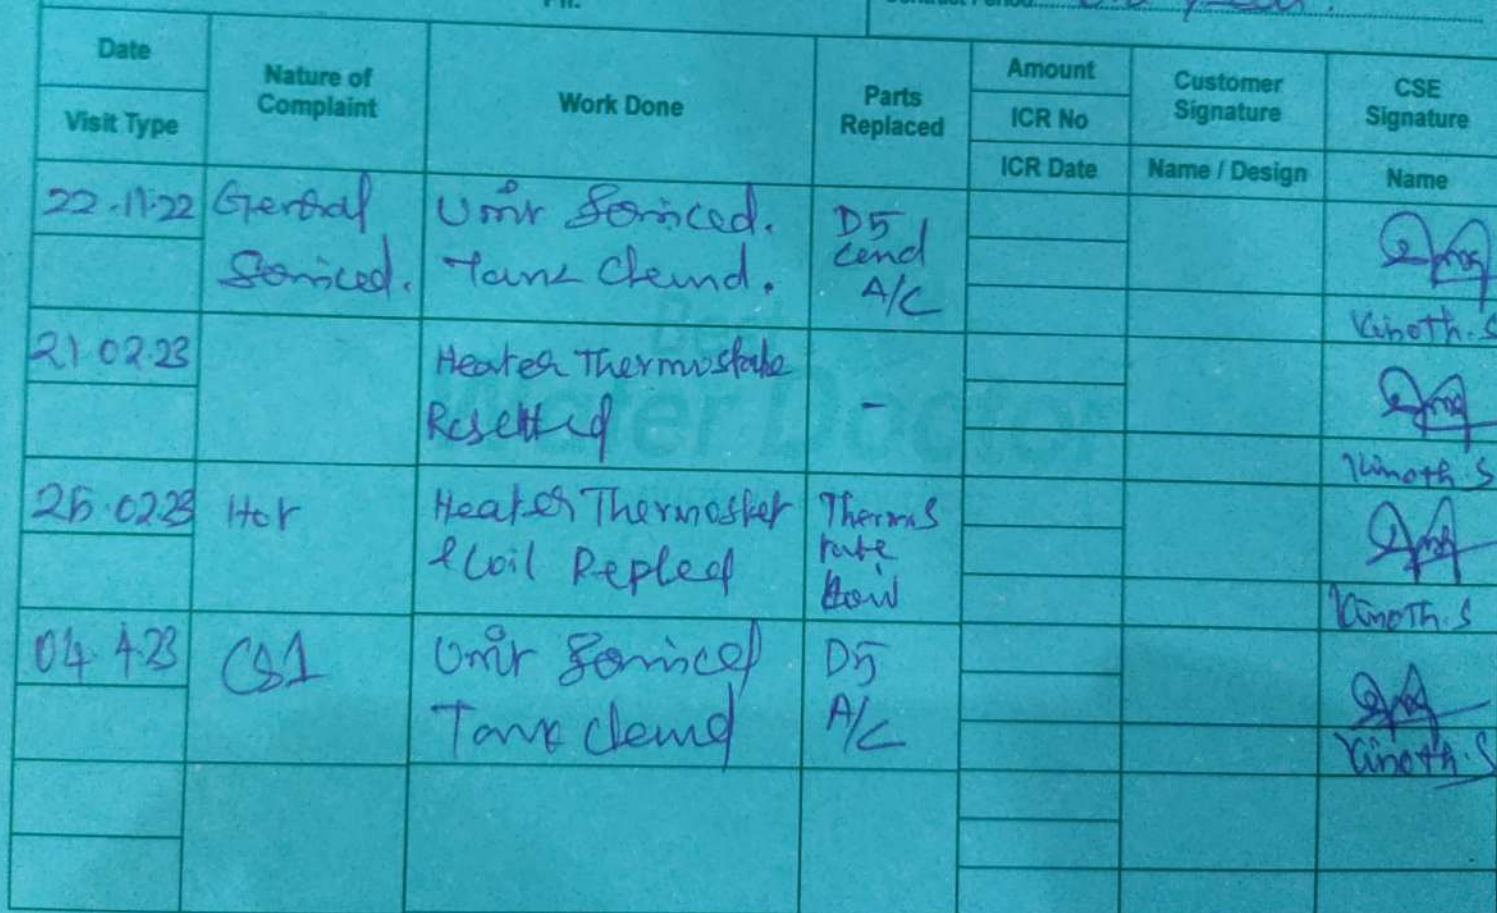 Ph.
Contract Period
Date
Visit Type
Nature of
Complaint
Work Done
Parts
Replaced
Amount
ICR No
ICR Date
Customer
Signature
Name / Design
CSE
Signature
Name
22.11.22
General
Serviced.
Unit Serviced.
Tank Cleand.
D5
Cend
A/C
Vinoth.S
21.02.23
Heater Thermostate
Resetted
-
Vinoth.S
Heater Thermostet
& Coil Repled
Thermos
tate
Vinoth.S
04.4.23
CS1
Unit Serviced
Tank cleand
D5
A/C
Vinoth.S
Water Doctor